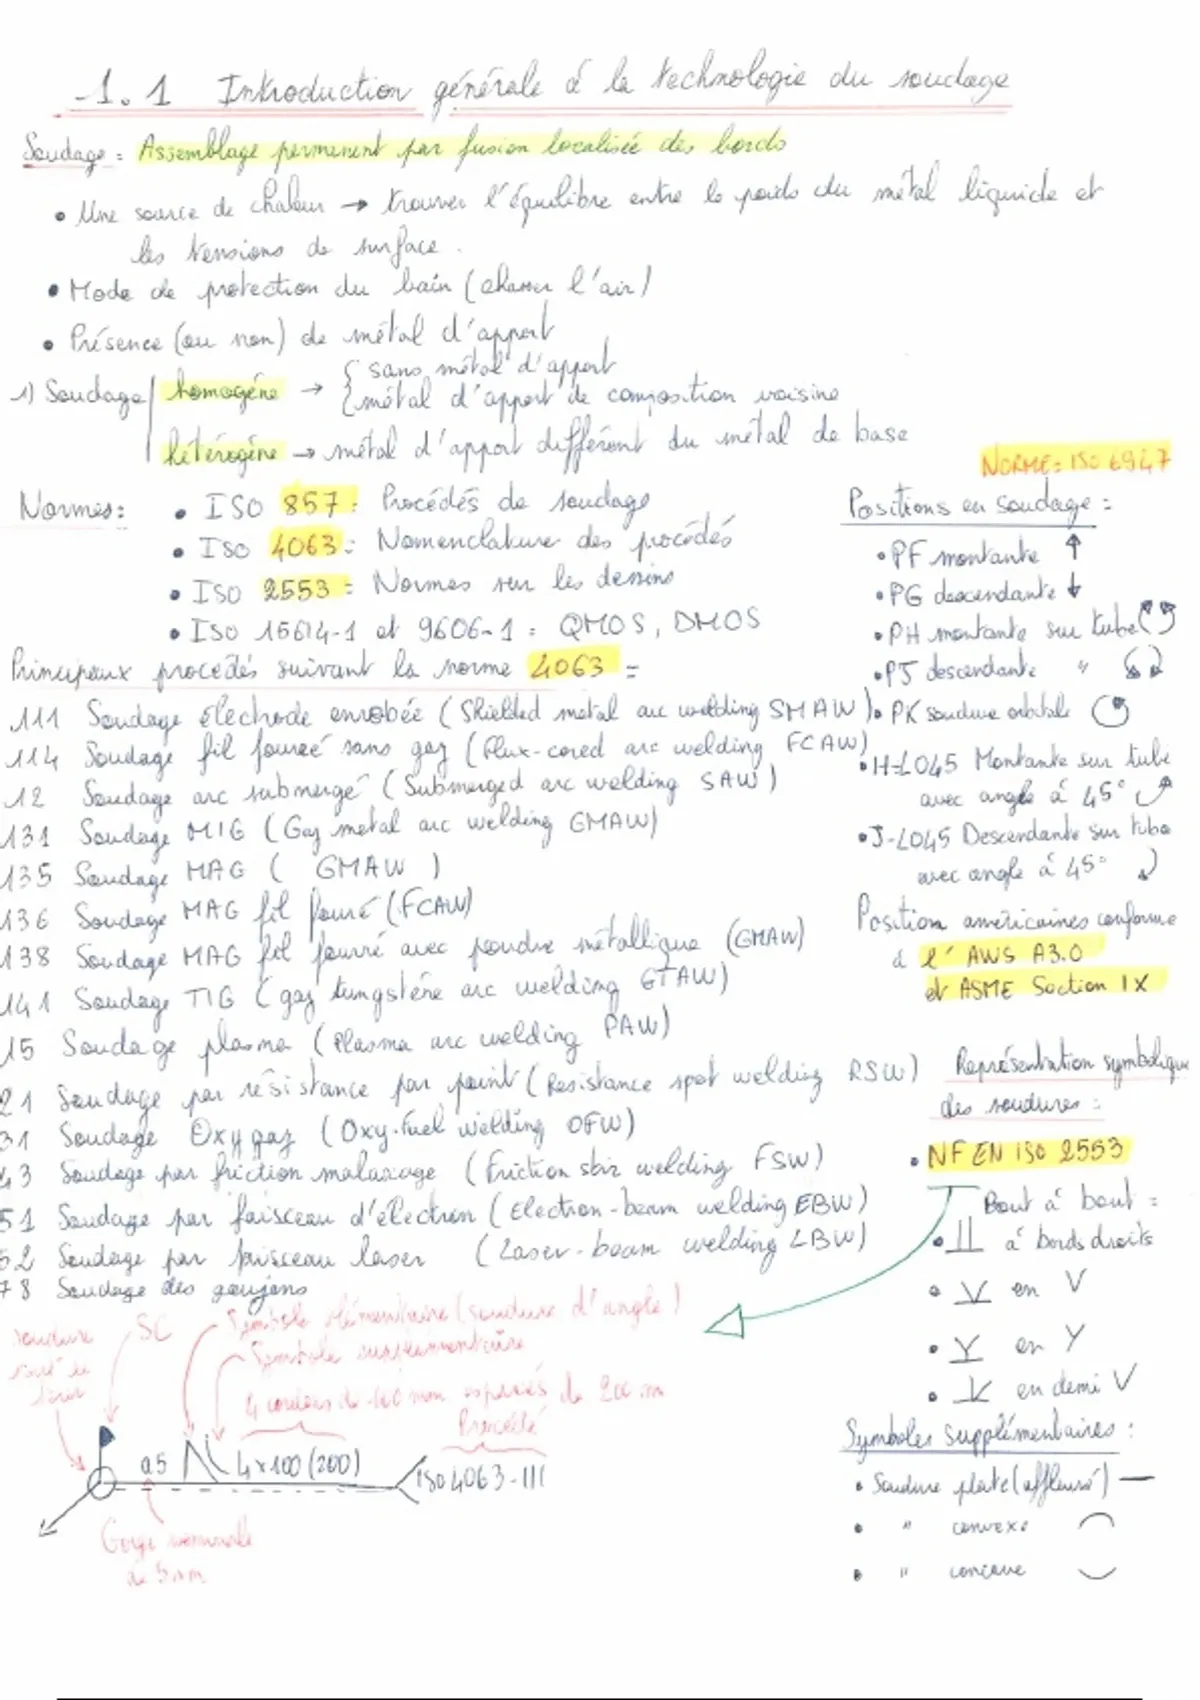 1.1 Introduction générale à la technologie du soudage
Soudage : Assemblage permanent par fusion localisée des bords
• Une source de chaleur → trouver l'équilibre entre le poids du métal liquide et
les tensions de surface.
• Mode de protection du bain (chasser l'air)
• Présence (ou non) de métal d'apport
1) Soudage homogène → { sans métal d'apport
{ métal d'apport de composition voisine
hétérogène → métal d'apport différent du métal de base
Normes :
• ISO 857 : Procédés de soudage
• ISO 4063 : Nomenclature des procédés
• ISO 2553 : Normes sur les dessins
• ISO 15614-1 et 9606-1 : QMOS, DMOS
Principaux procédés suivant la norme 4063 :
111 Soudage électrode enrobée (Shielded metal arc welding SMAW)
114 Soudage fil fourré sans gaz (Flux-cored arc welding FCAW)
12 Soudage arc submergé (Submerged arc welding SAW)
131 Soudage MIG (Gaz metal arc welding GMAW)
135 Soudage MAG ( GMAW )
136 Soudage MAG fil fourré (FCAW)
138 Soudage MAG fil fourré avec poudre métallique (GMAW)
141 Soudage TIG (gaz tungstène arc welding GTAW)
15 Soudage plasma (Plasma arc welding PAW)
21 Soudage par résistance par point (Resistance spot welding RSW)
31 Soudage Oxygaz (Oxy-fuel welding OFW)
43 Soudage par friction malaxage (Friction stir welding FSW)
51 Soudage par faisceau d'électron (Electron-beam welding EBW)
52 Soudage par faisceau laser (Laser-beam welding LBW)
78 Soudage des goujons
NORME : ISO 6947
Positions en soudage :
• PF montante ↑
• PG descendante ↓
• PH montante sur tube
• PJ descendante "
• PK soudure orbitale
• H-L045 Montante sur tube
avec angle à 45°
• J-L045 Descendante sur tube
avec angle à 45°
Position américaines conforme
à l'AWS A3.0
et ASME Section IX
Représentation symbolique
des soudures :
• NF EN ISO 2553
Bout à bout :
• à bords droits
• en V
• en Y
• en demi V
Symboles supplémentaires :
• Soudure plate (affleuré) —
• " convexe
• " concave
soudure
SC
Symbole élémentaire (soudure d'angle)
Symbole supplémentaire
4 cordons de 100 mm espacés de 200 mm
Procédé
a5 4x100 (200) ISO 4063-111
Gorge nominale
de 5 mm